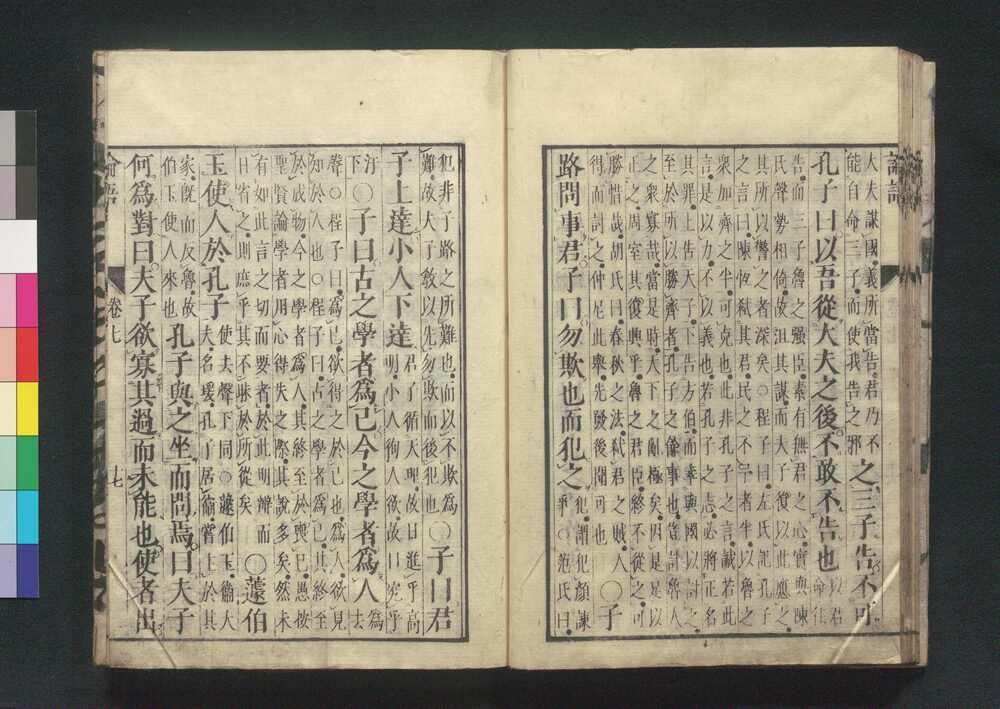 論語
大夫謀國義所當告君乃不
能自命三子而使我告之邪
之三子告不可
孔子曰以吾從大夫之後不敢不告也
以君
命往
告而三子魯之強臣素有無君之心實與陳
氏聲勢相倚故沮其謀而夫子復以此應之
其所以警之者深矣○程子曰左氏記孔子
之言曰陳恆弒其君民之不予者半以魯之
衆加齊之半可克也此非孔子之言誠若此
言是以力不以義也若孔子之志必將正名
其罪上告天子下告方伯而率與國以討之
至於所以勝齊者孔子之餘事也豈計魯人
之衆寡哉當是時天下之亂極矣因是足以
正之周室其復興乎魯之君臣終不從之可
勝惜哉胡氏曰春秋之法弒君之賊人
得而討之仲尼此舉先發後聞可也
○子
路問事君子曰勿欺也而犯之
犯謂犯顏諫
爭○范氏曰
犯非子路之所難也而以不欺為
難故夫子教以先勿欺而後犯也
○子曰君
子上達小人下達
君子循天理故日進乎高
明小人徇人欲故日究乎
汙
下
○子曰古之學者為己今之學者為人
為
去
聲○程子曰為己欲得之於己也為人欲見
知於人也○程子曰古之學者為己其終至
於成物今之學者為人其終至於喪己愚按
聖賢論學者用心得失之際其說多矣然未
有如此言之切而要者於此明辨而
日省之則庶乎其不昧於所從矣
○蘧伯
玉使人於孔子
使去聲下同○蘧伯玉衞大
夫名瑗孔子居衞嘗主於其
家旣而反魯故
伯玉使人來也
孔子與之坐而問焉曰夫子
何為對曰夫子欲寡其過而未能也使者出
論語
卷七
十七